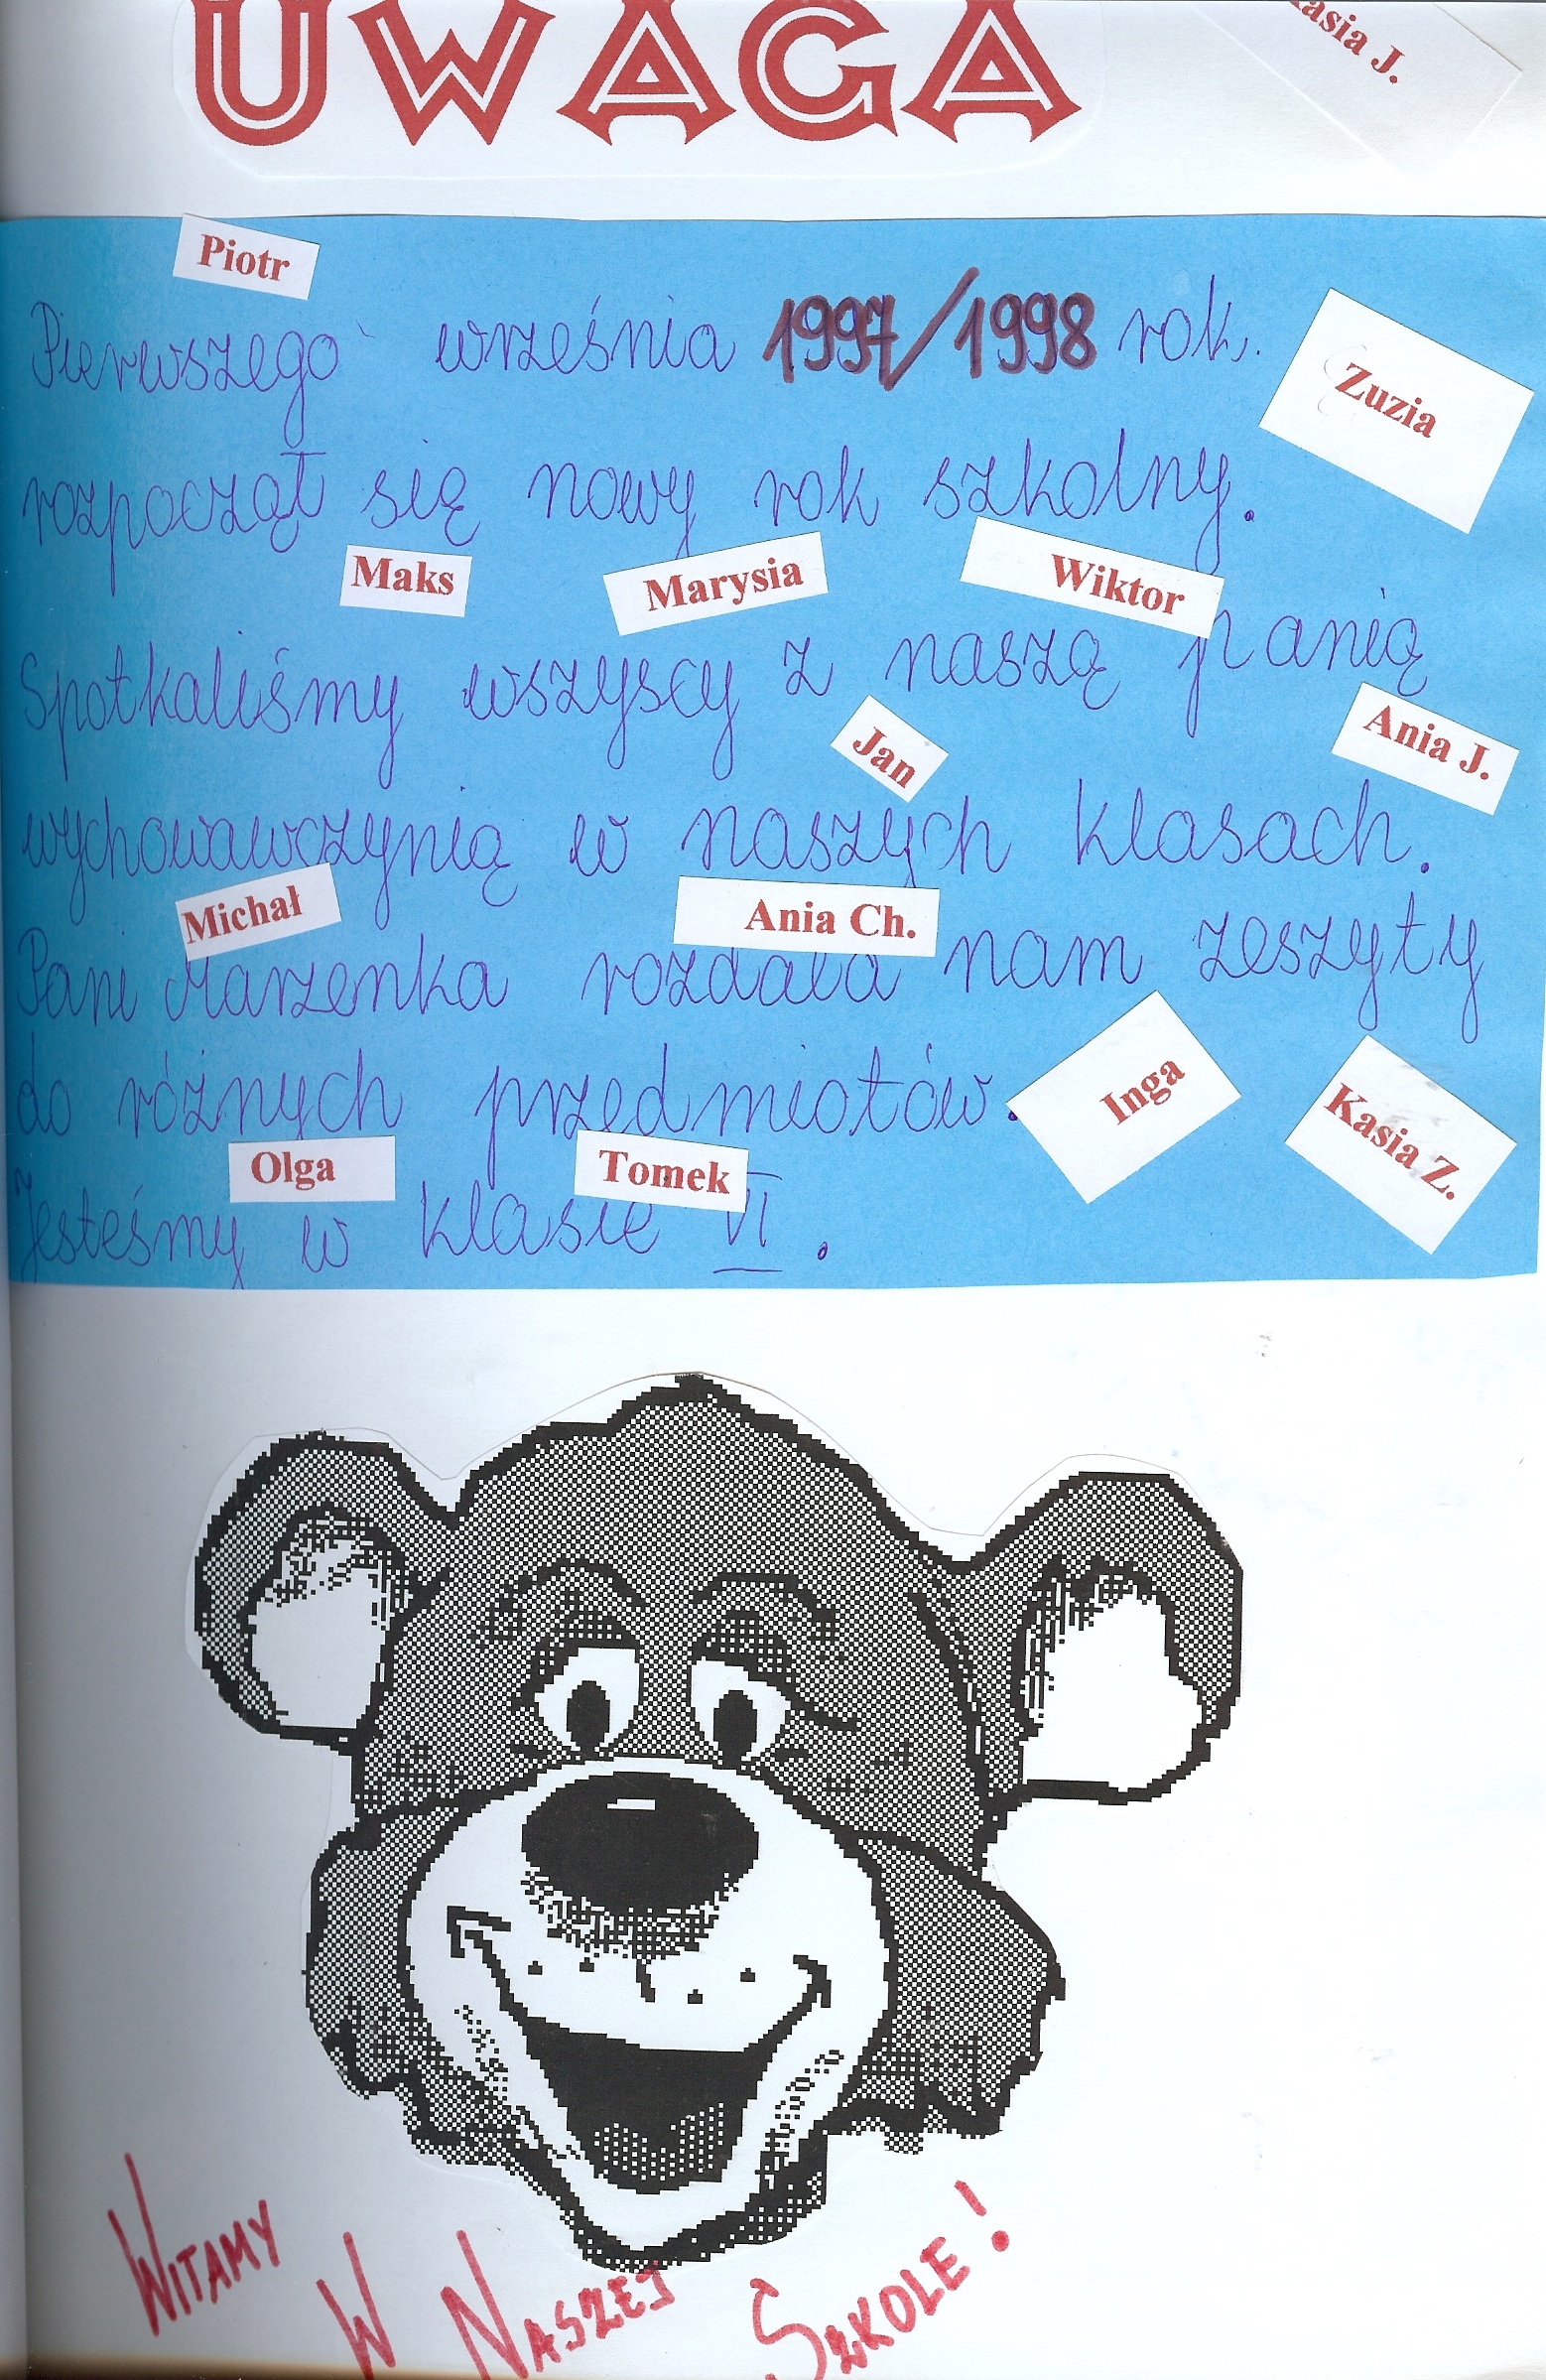 UWAGA
asia J.
Piotr
Pierwszego września 1997/1998 rok.
Zuzia
rozpoczął się nowy rok szkolny.
Maks
Marysia
Wiktor
Spotkaliśmy wszyscy z naszą panią
Jan
Ania J.
wychowawczynią w naszych klasach.
Michał
Ania Ch.
Pani Marzenka rozdała nam zeszyty
do różnych przedmiotów.
Inga
Kasia Z.
Olga
Tomek
Jesteśmy w klasie VI.
WITAMY
W NASZEJ SZKOLE!